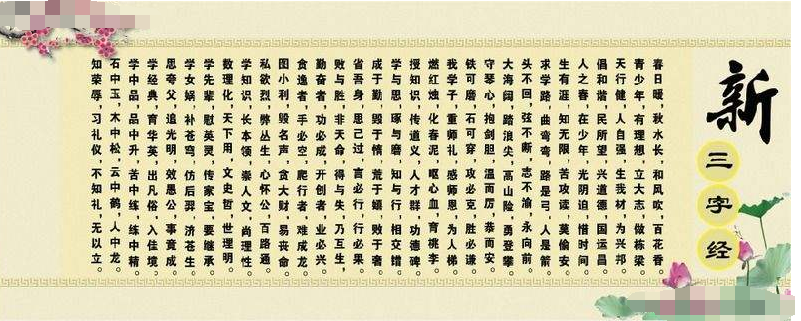 新三字经
春日暖，秋水长，和风吹，百花香
青少年，有理想，立大志，做栋梁。
天行健，人自强，生我材，为兴邦。
倡和谐，民所望，兴道德，国运昌。
人之春，在少年，光阴迫，惜时间。
生有涯，知无限，苦攻读，莫偷安。
求学路，曲弯弯，路是弓，人是箭。
头不回，弦不断，志不渝，永向前。
大海阔，踏浪尖，高山险，勇登攀。
守琴心，抱剑胆，温而厉，恭而安。
铁可磨，石可穿，攻必克，胜必谦。
我学子，重师礼，感师恩，为人梯。
燃红烛，化春泥，呕心血，育桃李。
授知识，传道义，人才群，功德碑。
学与思，琢与磨，知与行，相交错。
成于勤，毁于惰，荒于嬉，败于奢。
省吾身，思己过，言必行，行必果。
败与胜，非天命，得与失，乃互生，
勤奋者，功必成，开创者，业必兴，
贪逸者，手必空，爬行者，难成龙。
图小利，毁名声，贪大财，易丧命。
私欲烈，弊丛生，心怀公，百路通。
学知识，长本领，崇人文，尚理性。
数理化，天下用，文史哲，世理明。
学先辈，慰英灵，传家宝，要继承。
学女娲，补苍穹，仿后羿，济苍生。
思夸父，追光明，效愚公，事竟成。
学经典，育华英，出凡俗，入佳境。
学中品，品中升，苦中练，练中精。
石中玉，木中松，云中鹤，人中龙。
知荣辱，习礼仪，不知礼，无以立。